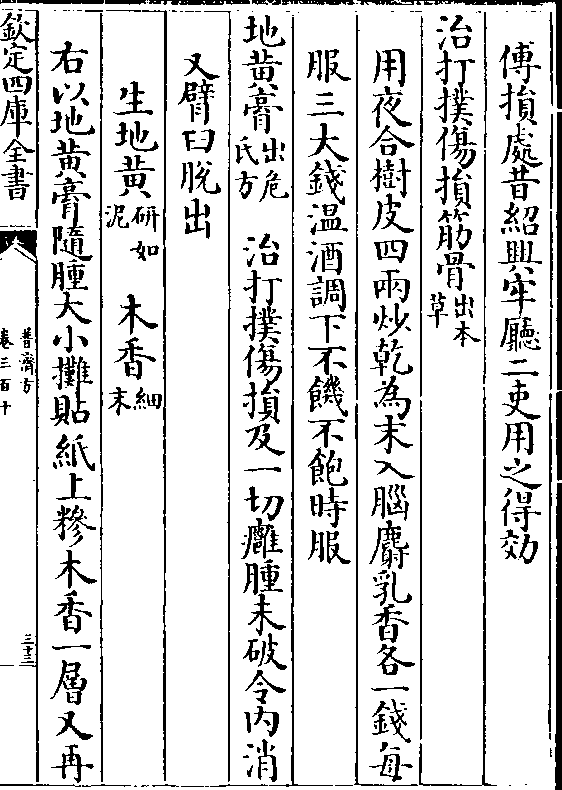 傅損處昔紹興牢廳二吏用之得効
治打撲傷損筋骨出本草
用夜合樹皮四兩炒乾為末入腦麝乳香各一錢每
服三大錢温酒調下不饑不飽時服
地黄膏出危氏方 治打撲傷損及一切癰腫未破令内消
又臂臼脱出
生地黄研如泥 木香細末
右以地黄膏隨腫大小攤貼紙上糝木香一層又再
欽定四庫全書
普濟方
卷三百十
三十三